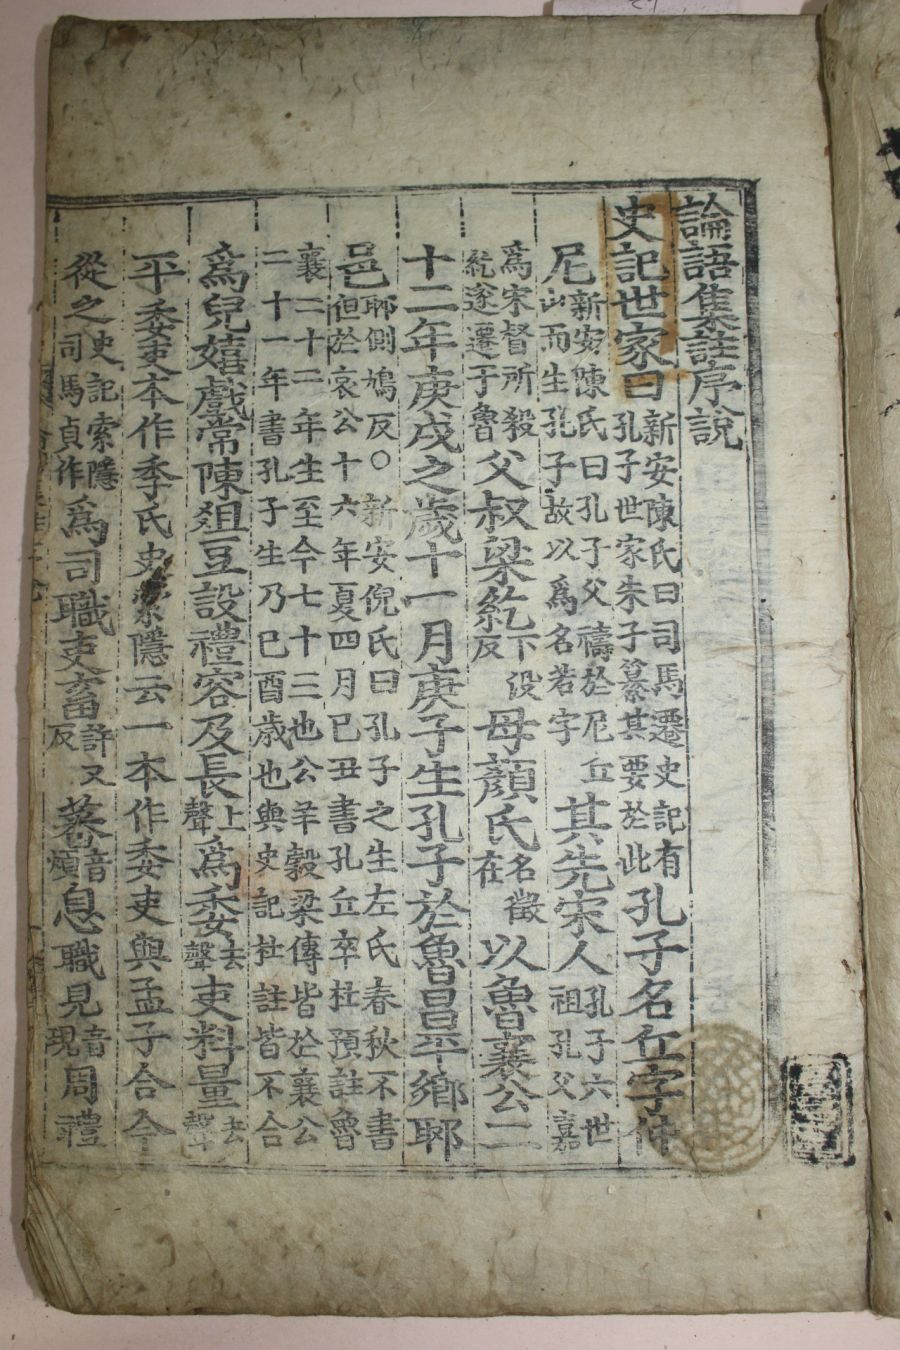 論語集註序說
史記世家曰新安陳氏曰司馬遷史記有孔子世家朱子纂其要於此孔子名丘字仲
尼新安陳氏曰孔子父禱於尼丘山而生孔子故以爲名若字其先宋人孔子六世祖孔父嘉
爲宋督所殺綂遂遷于魯父叔梁紇下沒反母顔氏名徵在以魯襄公二
十二年庚戌之歲十一月庚子生孔子於魯昌平鄉郰
邑郰側鳩反○新安倪氏曰孔子之生左氏春秋不書但於哀公十六年夏四月己丑書孔丘卒杜預註魯
襄二十二年生至今七十三也公羊穀梁傳皆於襄公二十一年書孔子生乃己酉歲也與史記杜註皆不合
爲兒嬉戲常陳俎豆設禮容及長上聲爲委去聲吏料量去聲
平委吏本作季氏史索隱云一本作委吏與孟子合今
從之史記索隱司馬貞作爲司職吏畜許又反蕃音煩息職見音現周禮